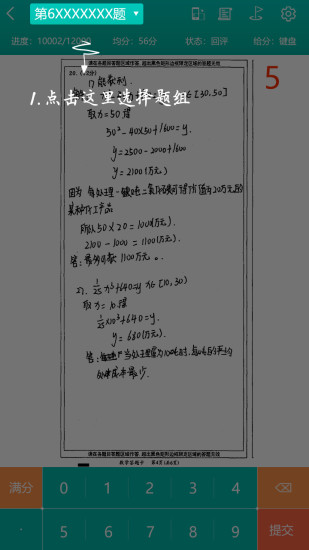 第6XXXXXXX题
进度：10002/12000 均分：56分 状态：回评 给分：键盘
请在各题目答题区域作答，超出黑色矩形边框限定区域的答案无效
5
20. (12分)
1) 能获利.
∈[30,50]
1.点击这里选择题组
取x=50得
50²-40×50+1600=y.
y=2500-2000+1600
y=2100(万元)
因为 每处理一吨二氧化碳可得价值为20万元的
某种化工产品
所以 50×20=1000(万元).
2100-1000=1100(万元).
答：最多可获1100万元。
2).
x³+640=y x∈[10,30)
取x=10得
×10³+640=y.
y=680(万元).
答：当处理量为10吨时，每吨的平均
处理成本最少.
请在各题目答题区域作答，超出黑色矩形边框限定区域的答案无效
数学答题卡
满分 0 1 2 3 4
· 5 6 7 8 9 提交